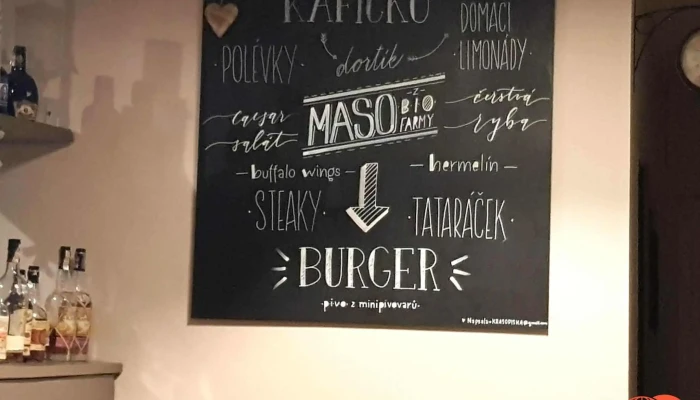 KAFÍČKO
DOMÁCÍ
LIMONÁDY
POLÉVKY
dortík
caesar
salát
MASO
Z
BIO
FARMY
čerstvá
ryba
buffalo wings
hermelín
STEAKY
TATARÁČEK
BURGER
pivo z minipivovarů